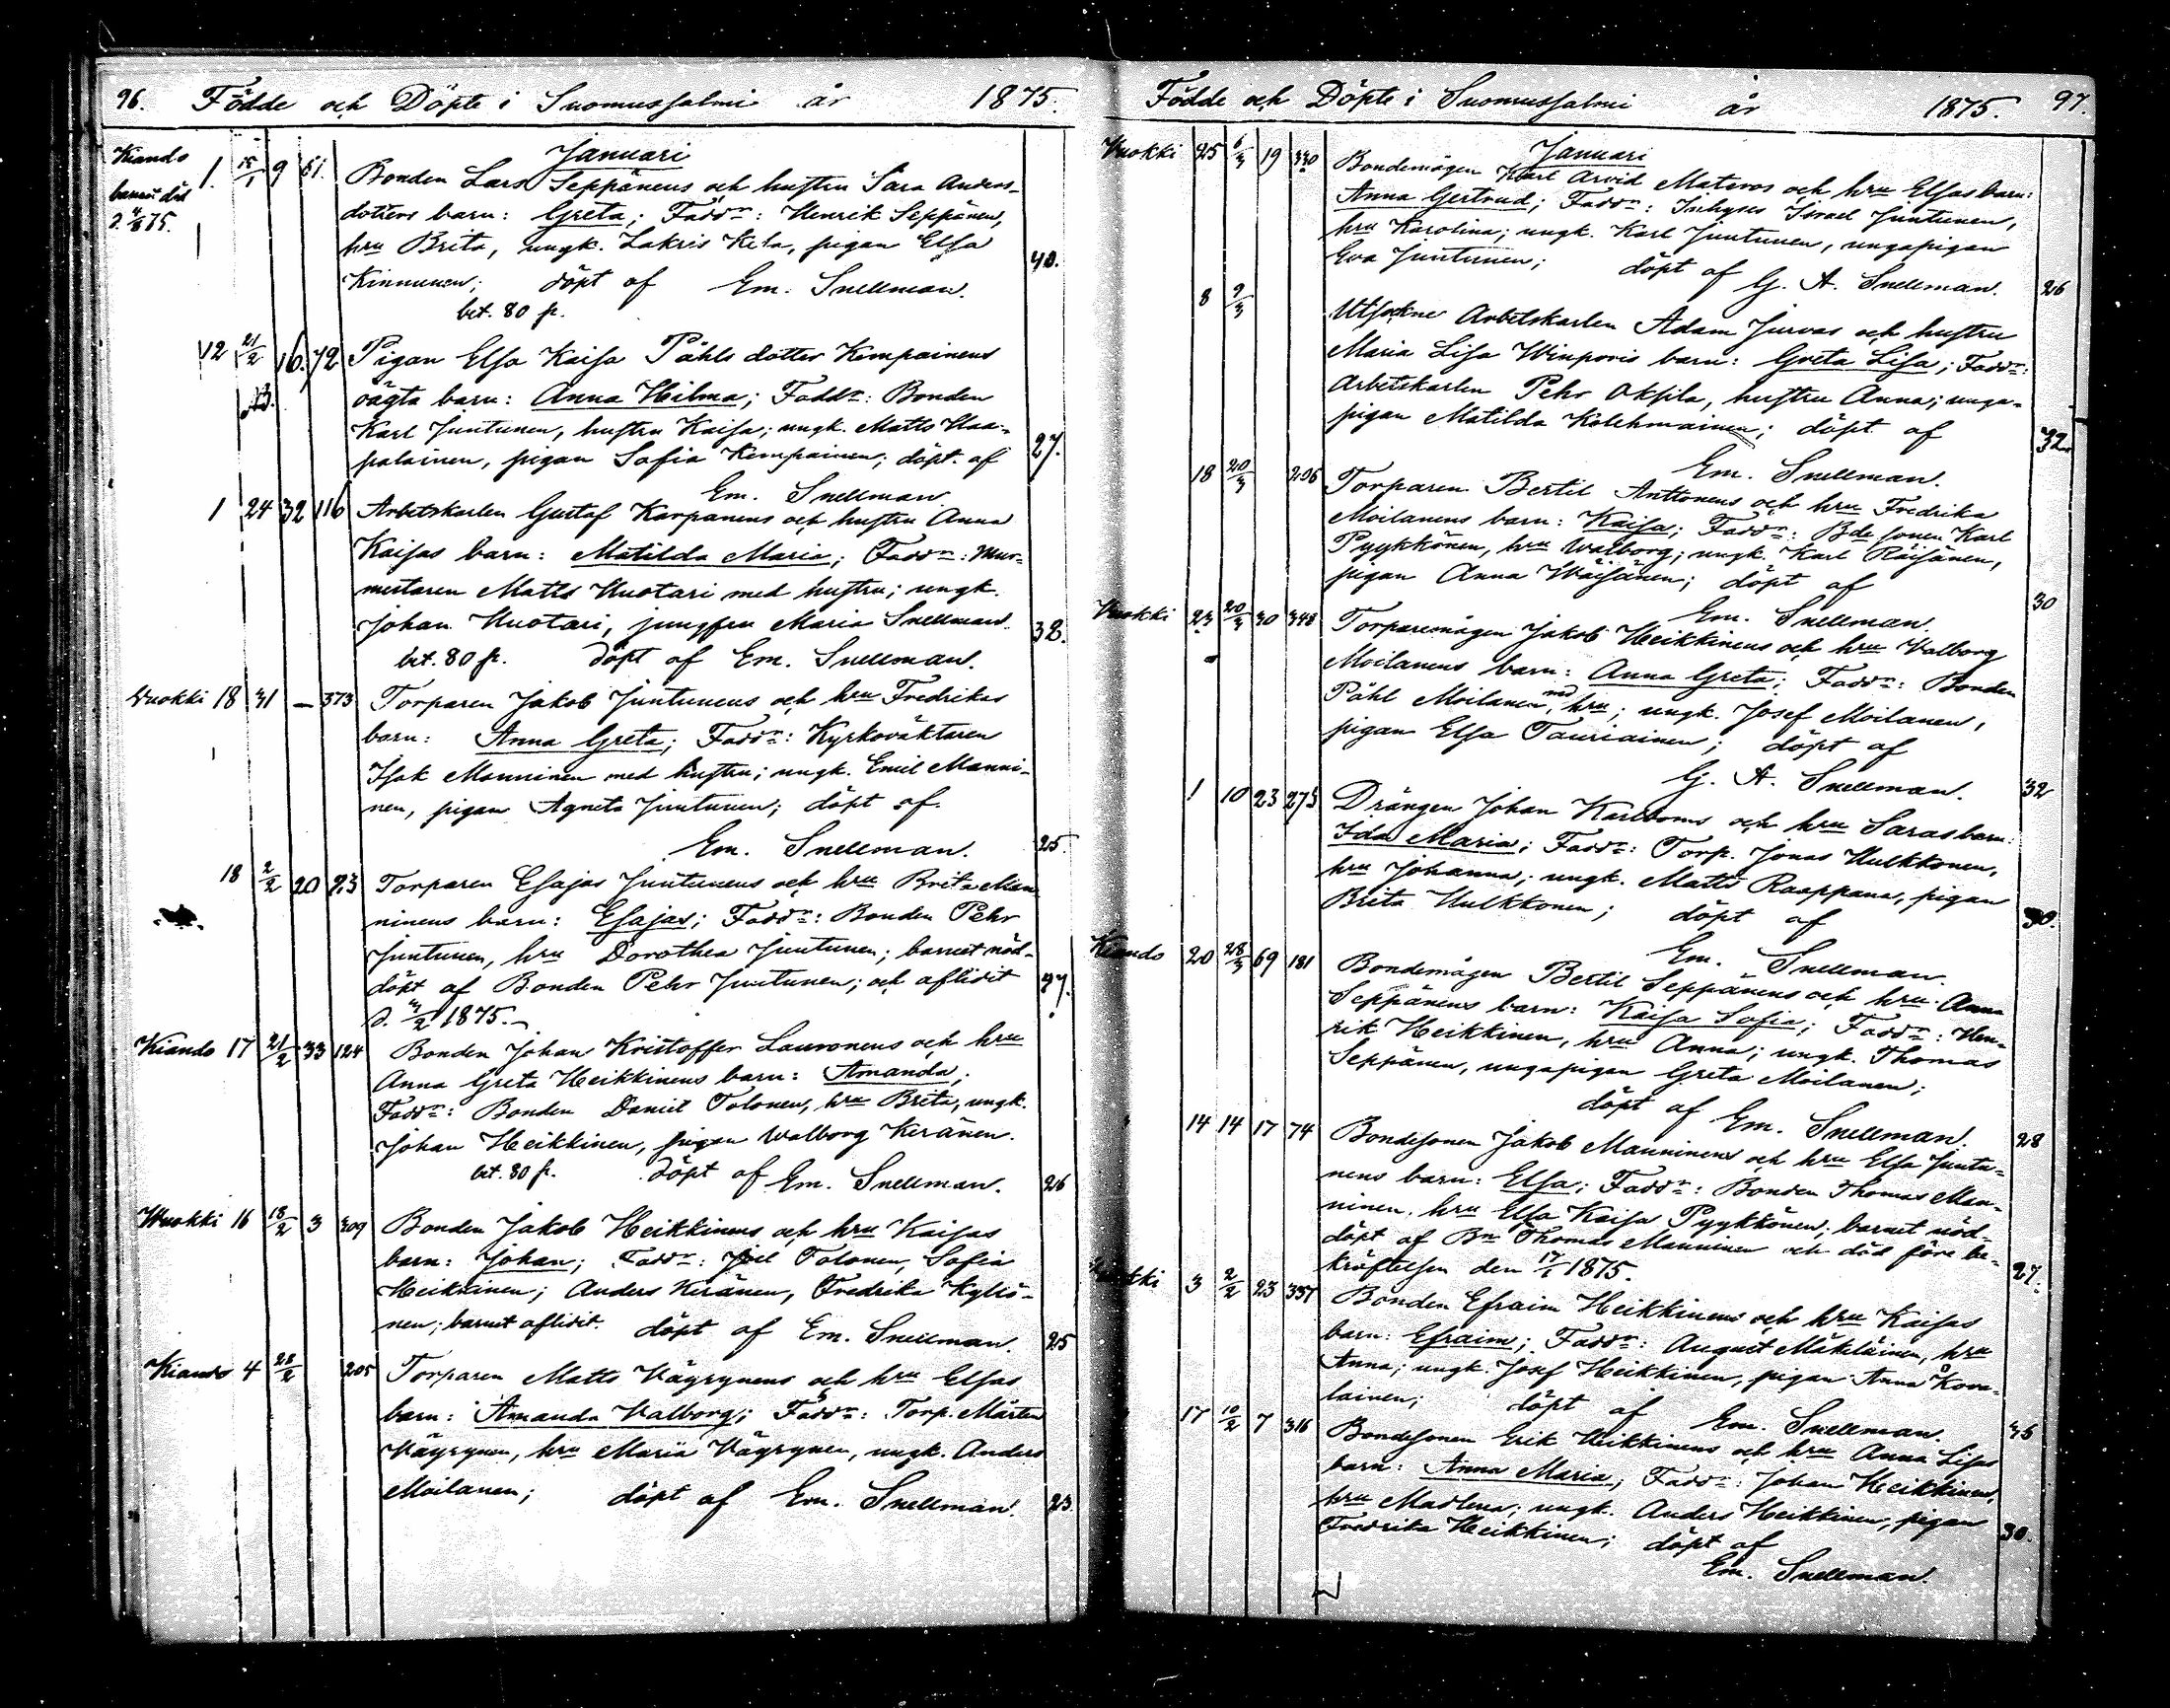 96. Födde och Döpte i Suomussalmi år 1875.
Januari
Kiando 1. 15/1 9 61. Bonden Lars Seppänens och hustru Sara Anders-
barnet död
dotters barn: Greta; Faddr: Henrik Seppänen,
hru Brita, ungk. Zakris Kela, pigan Elsa
Kinnunen; döpt af Em. Snellman. 40.
bet. 80 p.
12 21/2 16. 72 Pigan Elsa Kaisa Påhls dotter Kempainens
oägta barn: Anna Hilma; Faddr: Bonden
Karl Juntunen, hustru Kaisa; ungk. Matts Haa-
palainen, pigan Sofia Kempainen; döpt af 27.
Em. Snellman
1 24 32 116 Arbetskarlen Gustaf Karpanens och hustru Anna
Kaisas barn: Matilda Maria; Faddr: Mur-
mestaren Matts Huotari med hustru; ungk.
Johan Huotari, jungfru Maria Snellman. 32.
bet. 80 p. döpt af Em. Snellman.
Vuokki 18 31 – 373 Torparen Jakob Juntunens och hru Fredrikas
barn: Anna Greta; Faddr: Kyrkoväktaren
Isak Manninen med hustru; ungk. Emil Manni-
nen, pigan Agneta Juntunen; döpt af
Em. Snellman. 25.
18 2/2 20 93 Torparen Esajas Juntunens och hru Brita Man-
ninens barn: Esajas; Faddr: Bonden Pehr
Juntunen, hru Dorothea Juntunen; barnet nöd-
döpt af Bonden Pehr Juntunen; och aflidit 27.
1875.
Kiando 17 21/2 33 124 Bonden Johan Kristoffer Lauronens och hru
Anna Greta Heikkinens barn: Amanda;
Faddr: Bonden Daniel Tolonen, hru Brita, ungk.
Johan Heikkinen, pigan Walborg Keränen.
bet. 80 p. döpt af Em. Snellman. 26
Wuokki 16 18/2 3 309 Bonden Jakob Heikkinens och hru Kaisas
barn: Johan; Faddr: Joel Tolonen, Sofia
Heikkinen; Anders Keränen, Fredrika Kyllö-
nen; barnet aflidit. döpt af Em. Snellman. 25
Kiando 4 28/2 205 Torparen Matts Väyrynens och hru Elsas
barn: Amanda Valborg; Faddr: Torp. Mårten
Väyrynen, hru Maria Väyrynen, ungk. Anders
Moilanen; döpt af Em. Snellman. 23.
Födde och Döpte i Suomussalmi år 1875. 97.
Januari
Vuokki 25 6/3 19 330 Bondemågen Karl Arvid Materos och hru Elsas barn:
Anna Gertrud; Faddr: Inhyses Israel Juntunen,
hru Karolina; ungk. Karl Juntunen, ungapigan
Eva Juntunen; döpt af G. A. Snellman. 26
8 9/3 Utsokne Arbetskarlen Adam Jurvas och hustru
Maria Lisa Winporis barn: Greta Lisa; Faddr:
Arbetskarlen Pehr Oksila, hustru Anna; unga-
pigan Matilda Kolehmainen; döpt af 32.
Em. Snellman.
18 20/3 206 Torparen Bertil Anttonens och hru Fredrika
Moilanens barn: Kaisa; Faddr: Bdesonen Karl
Pyykkönen, hru Walborg; ungk. Karl Räisänen,
pigan Anna Wäisänen; döpt af 30
Em. Snellman.
Vuokki 23 20/3 30 348 Torparemågen Jakob Heikkinens och hru Valborg
Moilanens barn: Anna Greta; Faddr: Bonden
Påhl Moilanen med hru; ungk. Josef Moilanen,
pigan Elsa Tauriainen; döpt af
G. A. Snellman. 32
1 10 23 275 Drängen Johan Karlsoms och hru Saras barn:
Ida Maria; Faddr: Torp. Jonas Hulkkonen,
hru Johanna; ungk. Matts Raappana, pigan
Brita Hulkkonen; döpt af 30.
Em. Snellman.
Kiando 20 28/3 69 181 Bondemågen Bertil Seppänens och hru Anna
Seppänens barn: Kaisa Sofia; Faddr: Hen-
rik Heikkinen, hru Anna; ungk. Thomas
Seppänen, ungapigan Greta Moilanen;
döpt af Em. Snellman. 28
14 14 17 74 Bondesonen Jakob Manninens och hru Elsa Juntu-
nens barn: Elsa; Faddr: Bonden Thomas Man-
ninen, hru Elsa Kaisa Pyykkönen; barnet nöd-
döpt af Bn Thomas Manninen och död före be-
kräftelsen den 17/1 1875. 27.
Vuokki 3 2/2 23 337 Bonden Efraim Heikkinens och hru Kaisas
barn: Efraim; Faddr: August Mäkeläinen, hru
Anna; ungk. Josef Heikkinen, pigan Anna Kova-
lainen; döpt af Em. Snellman. 35
17 10/2 7 316 Bondesonen Erik Heikkinens och hru Anna Lisas
barn: Anna Maria; Faddr: Johan Heikkinen,
hru Madlena; ungk. Anders Heikkinen, pigan
Fredrika Heikkinen; döpt af 30.
Em. Snellman.